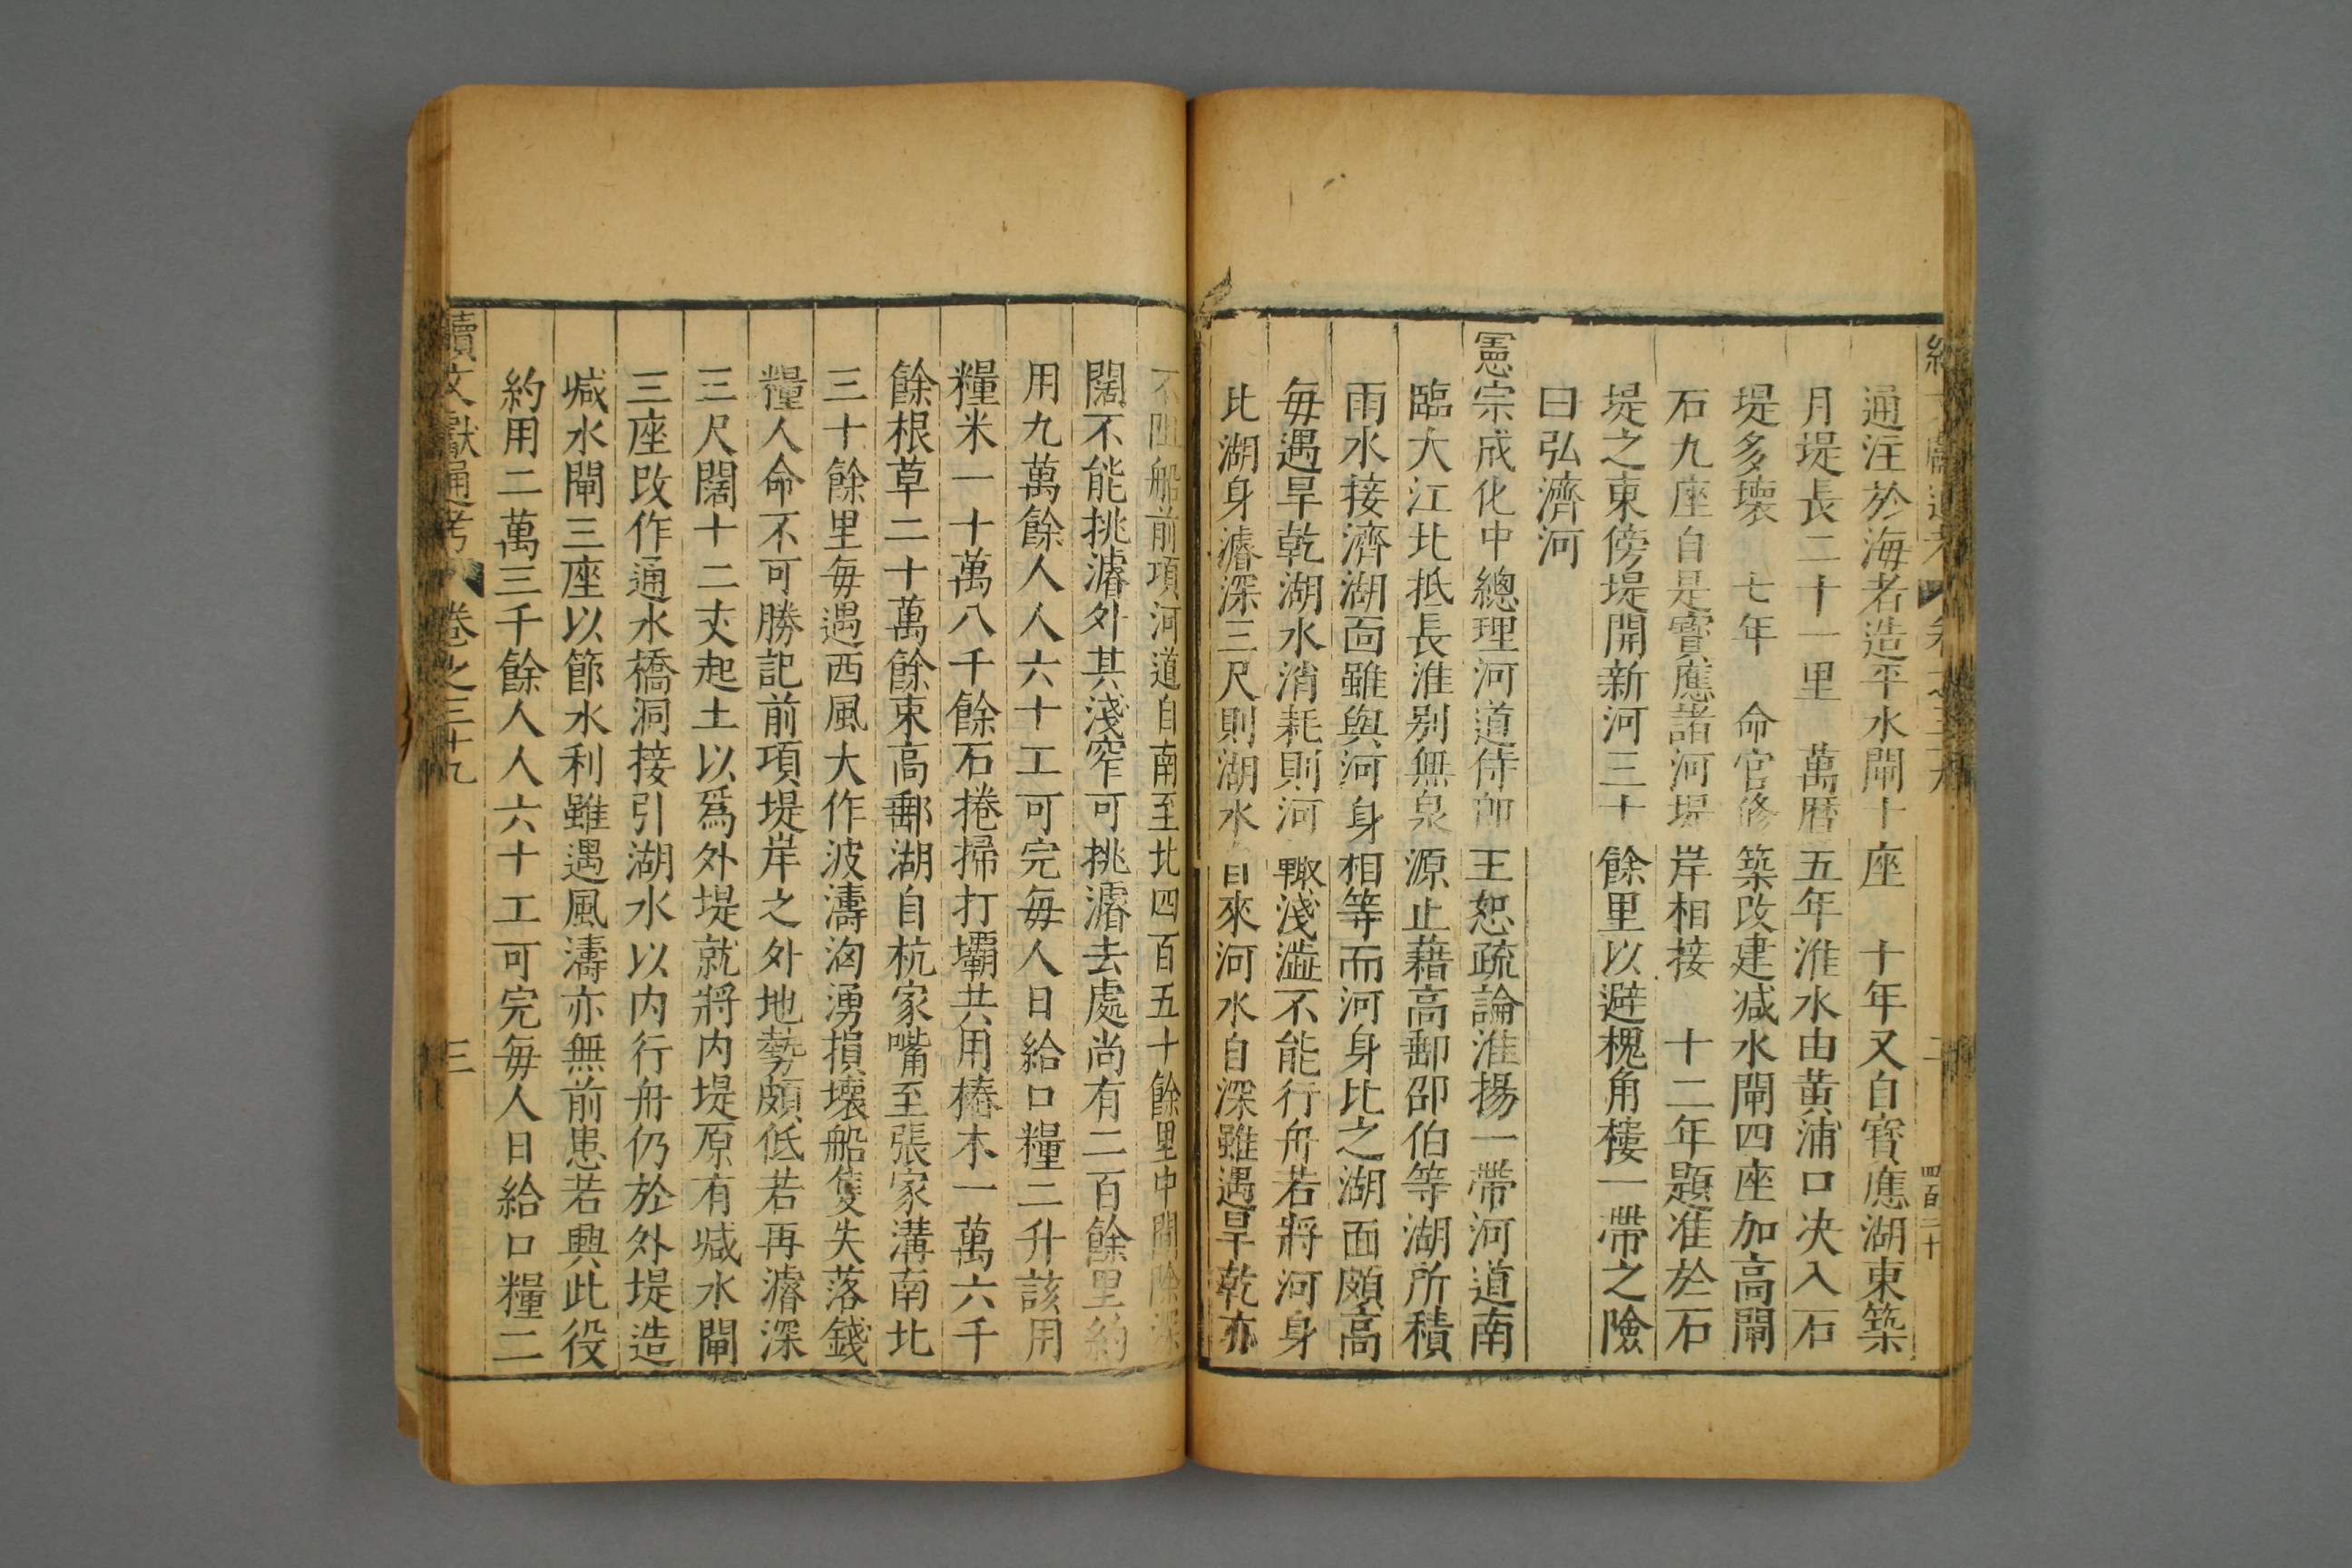 通注於海者造平水閘十座　十年又自寳應湖東築
月堤長二十一里　萬曆五年淮水由黄浦口决入石
堤多壊　七年　命官修築改建减水閘四座加高閘
石九座自是寳應諸河堤岸相接　十二年題准於石
堤之東傍堤開新河三十餘里以避槐角樓一帶之險
曰弘濟河
憲宗成化中總理河道侍郎王恕疏論淮揚一帶河道南
臨大江北抵長淮别無泉源止藉高郵邵伯等湖所積
雨水接濟湖面雖與河身相等而河身比之湖面頗高
毎遇旱乾湖水消耗則河輙淺澁不能行舟若將河身
比湖身濬深三尺則湖水自來河水自深雖遇旱乾亦
四百二十
不阻船前項河道自南至北四百五十餘里中間除深
闊不能挑濬外其淺窄可挑濬去處尚有二百餘里約
用九萬餘人人六十工可完毎人日給口糧二升該用
糧米一十萬八千餘石捲掃打壩共用椿木一萬六千
餘根草二十萬餘束高郵湖自杭家嘴至張家溝南北
三十餘里毎遇西風大作波濤洶湧損壊船隻失落錢
糧人命不可勝記前項堤岸之外地勢頗低若再濬深
三尺闊十二丈起土以爲外堤就將内堤原有减水閘
三座改作通水橋洞接引湖水以内行舟仍於外堤造
减水閘三座以節水利雖遇風濤亦無前患若興此役
約用二萬三千餘人人六十工可完毎人日給口糧二
續文獻通考　卷之三十九　三